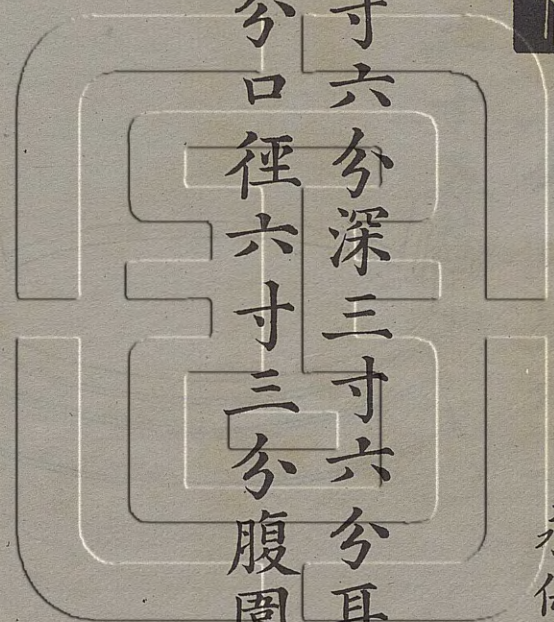 寸六分深三寸六分耳
分口徑六寸三分腹圍